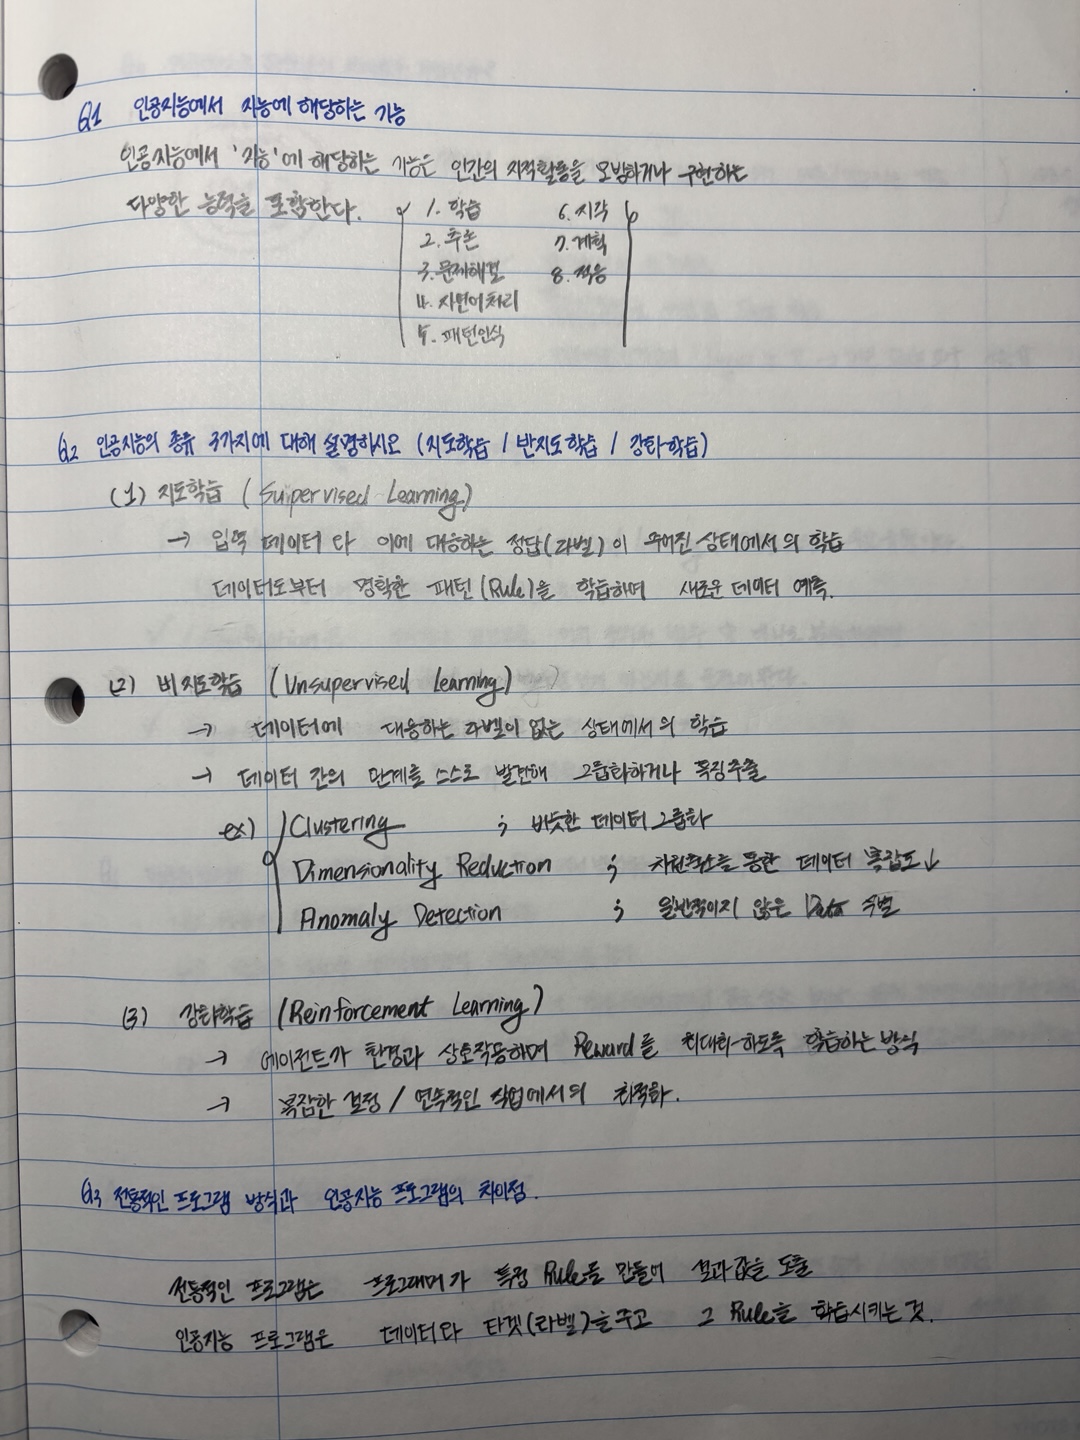 Q1 인공지능에서 지능에 해당하는 기능
인공지능에서 '지능'에 해당하는 기능은 인간의 지적활동을 모방하거나 구현하는
다양한 능력을 포함한다. 1. 학습 6. 시각
2. 추론 7. 계획
3. 문제해결 8. 적응
4. 자연어처리
5. 패턴인식
Q2 인공지능의 종류 3가지에 대해 설명하시오 (지도학습 / 반지도학습 / 강화학습)
(1) 지도학습 (Supervised Learning)
→ 입력 데이터와 이에 대응하는 정답(라벨)이 주어진 상태에서의 학습
데이터로부터 명확한 패턴(Rule)을 학습하며 새로운 데이터 예측.
(2) 비지도학습 (Unsupervised Learning)
→ 데이터에 대응하는 라벨이 없는 상태에서의 학습
→ 데이터 간의 관계를 스스로 발견해 그룹화하거나 특징추출
ex) Clustering ; 비슷한 데이터 그룹화
Dimensionality Reduction ; 차원축소를 통한 데이터 복잡도↓
Anomaly Detection ; 일반적이지 않은 Data 식별
(3) 강화학습 (Reinforcement Learning)
→ 에이전트가 환경과 상호작용하며 Reward를 최대화하도록 학습하는 방식
→ 복잡한 결정 / 연속적인 작업에서의 최적화.
Q3 전통적인 프로그램 방식과 인공지능 프로그램의 차이점.
전통적인 프로그램은 프로그래머가 특정 Rule을 만들어 결과값을 도출
인공지능 프로그램은 데이터와 타겟(라벨)을 주고 그 Rule을 학습시키는 것.